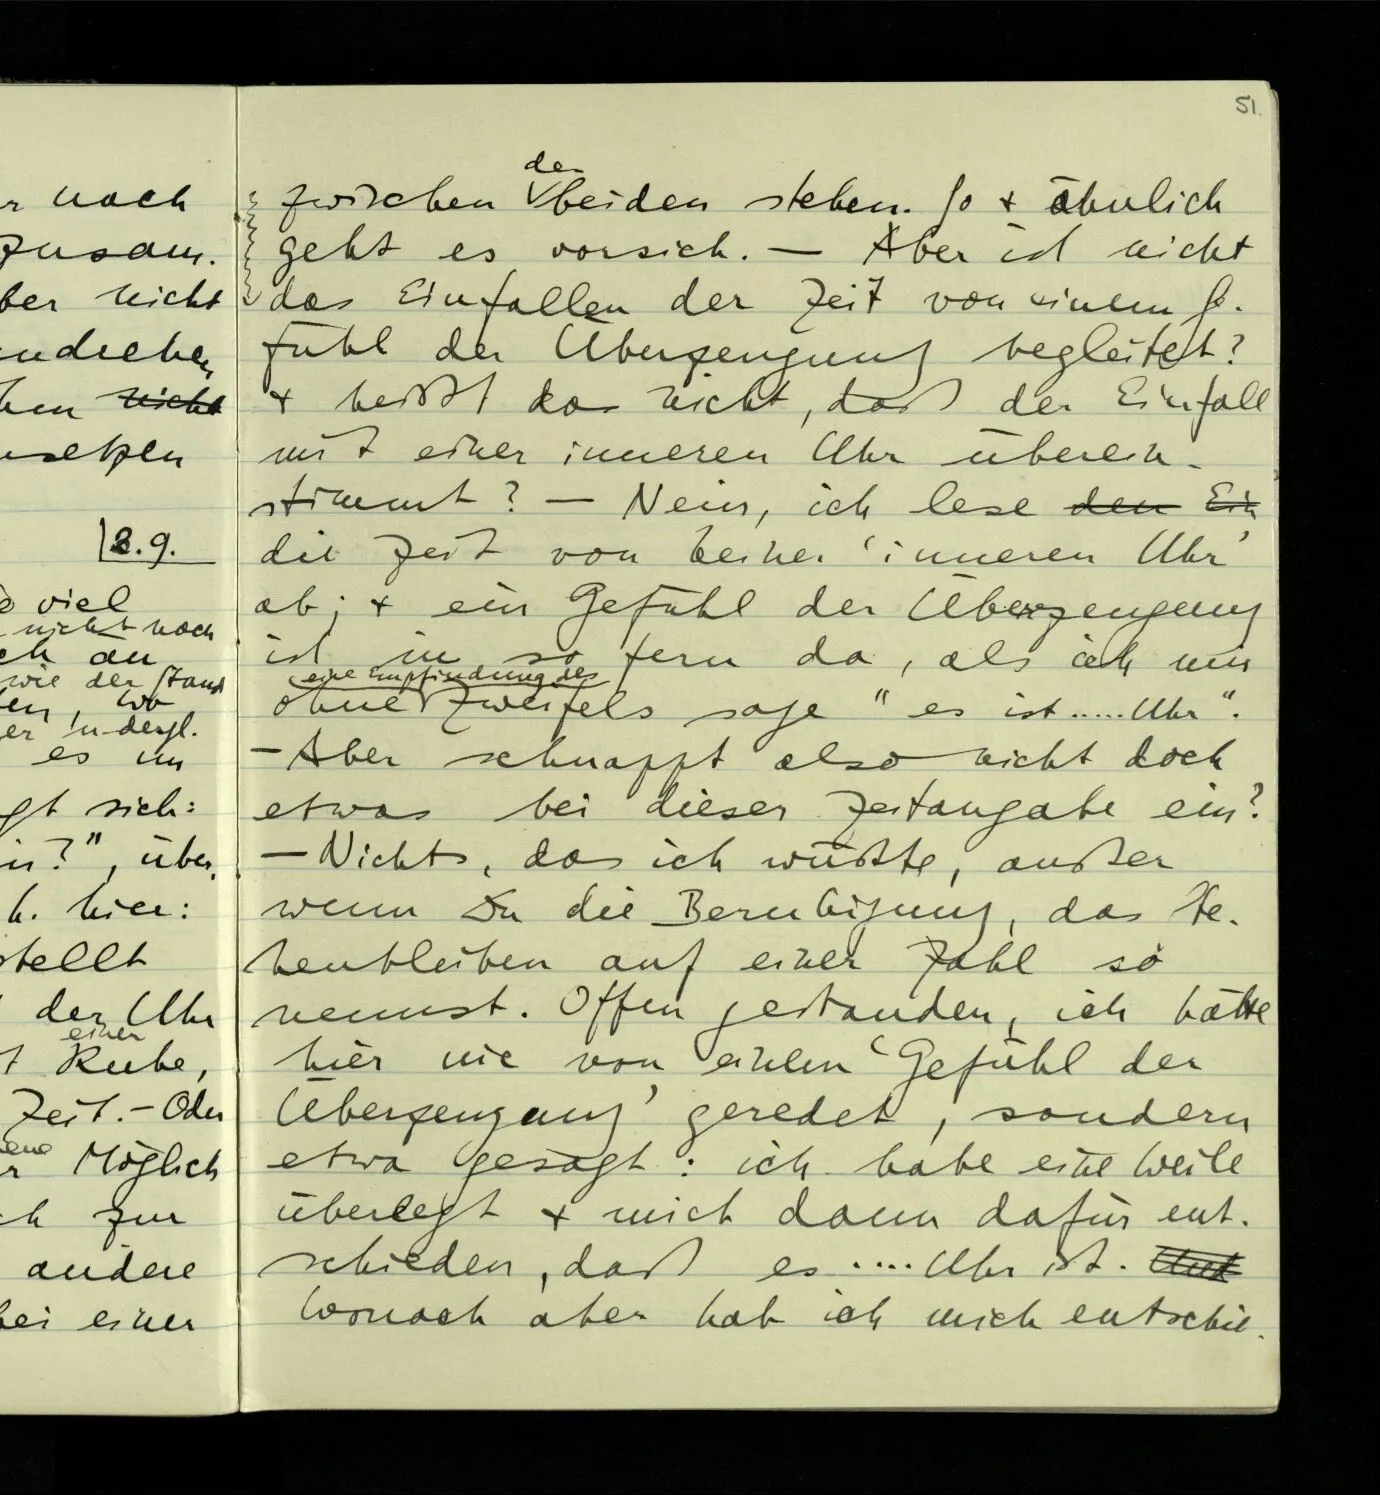 51.
nach
zusam.
ber nicht
nicht
setzen
8.9.
viel
nicht noch
an
wie der Stand
wo
es im
gt sich:
in?", über,
h. hier:
stellt
der Uhr
einer
Ruhe,
Zeit. – Oder
Möglich
zur
andere
bei einer
den
zwischen beiden stehen. So + ähnlich
geht es vorsich. — Aber ist nicht
das Einfallen der Zeit von einem Ge-
fühl der Überzeugung begleitet?
+ heißt das nicht, daß der Einfall
mit einer inneren Uhr überein-
stimmt? — Nein, ich lese den Ein
die Zeit von keiner 'inneren Uhr'
ab; + ein Gefühl der Überzeugung
ist in so fern da, als ich mir
eine Empfindung des
ohne Zweifels sage "es ist ..... Uhr".
— Aber schnappt also nicht doch
etwas bei dieser Zeitangabe ein?
— Nichts, das ich wüßte, außer
wenn Du die Beruhigung, das Ste-
henbleiben auf einer Zahl so
nennst. Offen gestanden, ich hätte
hier nie von einem 'Gefühl der
Überzeugung' geredet, sondern
etwa gesagt: ich habe eine Weile
überlegt + mich dann dafür ent-
schieden, daß es .... Uhr ist.
Wonach aber hab ich mich entschie-